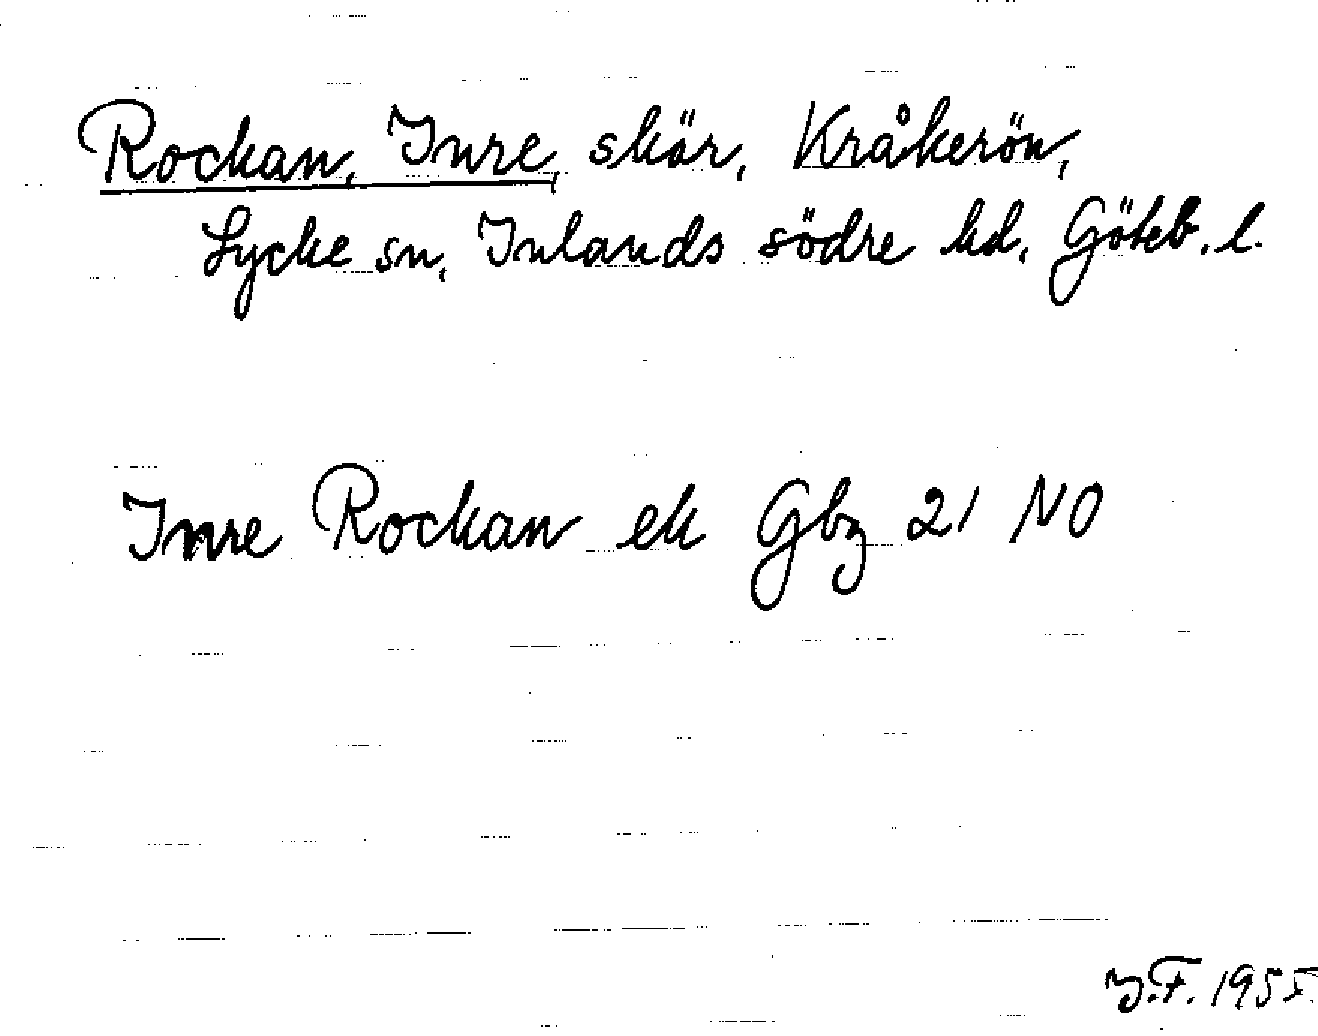 Rockan, Inre, skär, Kråkerön,
Lycke sn, Inlands södre hd, Göteb. l.
Inre Rockan ek Gbz 21 NO
J.F. 1955.